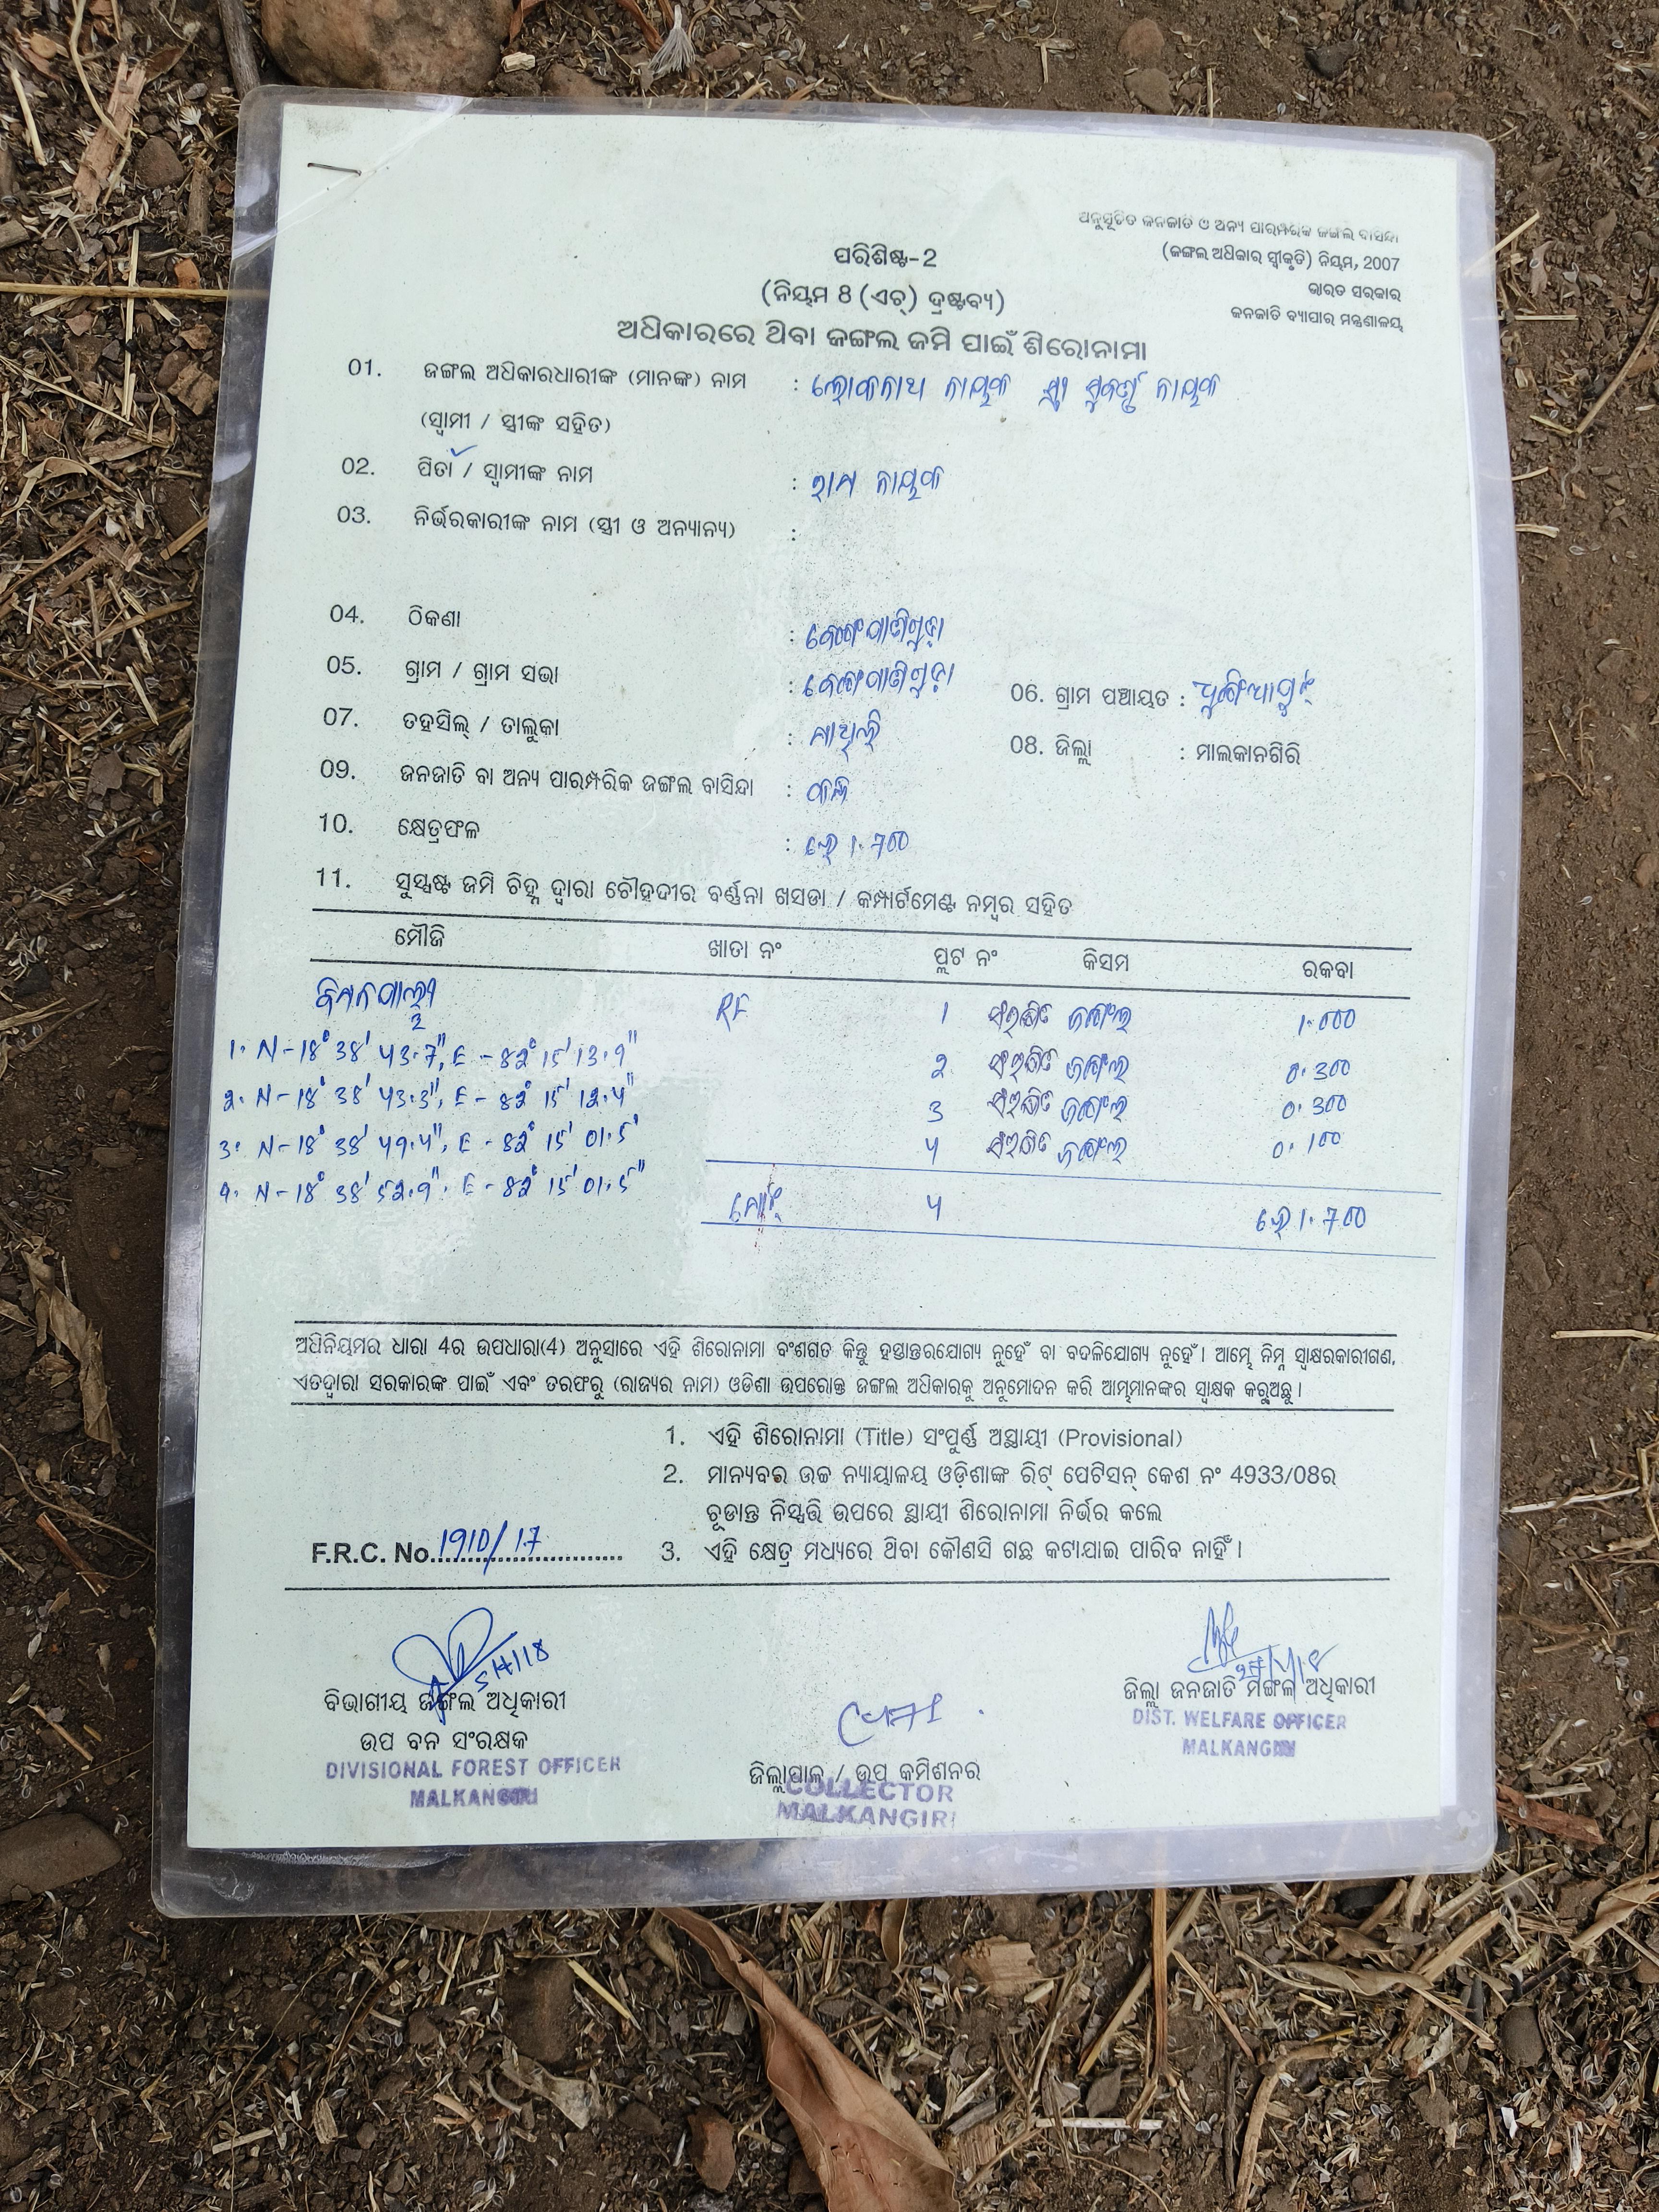 ଅନୁସୂଚିତ ଜନଜାତି ଓ ଅନ୍ୟ ପାରମ୍ପରିକ ଜଙ୍ଗଲ ବାସିନ୍ଦା
(ଜଙ୍ଗଲ ଅଧିକାର ସ୍ୱୀକୃତି) ନିୟମ, 2007
ଭାରତ ସରକାର
ଜନଜାତି ବ୍ୟାପାର ମନ୍ତ୍ରଣାଳୟ
ପରିଶିଷ୍ଟ-2
(ନିୟମ 8 (ଏଚ୍) ଦ୍ରଷ୍ଟବ୍ୟ)
ଅଧିକାରରେ ଥିବା ଜଙ୍ଗଲ ଜମି ପାଇଁ ଶିରୋନାମା
01. ଜଙ୍ଗଲ ଅଧିକାରଧାରୀଙ୍କ (ମାନଙ୍କ) ନାମ : ଲୋକନାଥ ନାୟକ ସ୍ତ୍ରୀ ସୁବର୍ଣ୍ଣ ନାୟକ
(ସ୍ୱାମୀ / ସ୍ତ୍ରୀଙ୍କ ସହିତ)
02. ପିତା / ସ୍ୱାମୀଙ୍କ ନାମ : ରାମ ନାୟକ
03. ନିର୍ଭରକାରୀଙ୍କ ନାମ (ସ୍ତ୍ରୀ ଓ ଅନ୍ୟାନ୍ୟ) :
04. ଠିକଣା :
05. ଗ୍ରାମ / ଗ୍ରାମ ସଭା :
06. ଗ୍ରାମ ପଞ୍ଚାୟତ :
07. ତହସିଲ୍ / ତାଲୁକା : ମାଥିଲି
08. ଜିଲ୍ଲା : ମାଲକାନଗିରି
09. ଜନଜାତି ବା ଅନ୍ୟ ପାରମ୍ପରିକ ଜଙ୍ଗଲ ବାସିନ୍ଦା :
10. କ୍ଷେତ୍ରଫଳ : 1.700
11. ସୁସ୍ପଷ୍ଟ ଜମି ଚିହ୍ନ ଦ୍ୱାରା ଚୌହଦୀର ବର୍ଣ୍ଣନା ଖସଡା / କମ୍ପାର୍ଟମେଣ୍ଟ ନମ୍ବର ସହିତ
ମୌଜି ଖାତା ନଂ ପ୍ଲଟ ନଂ କିସମ ରକବା
RF 1 ସଂରକ୍ଷିତ ଜଙ୍ଗଲ 1.000
1. N-18° 38' 43.7", E - 82° 15' 13.9"
2 ସଂରକ୍ଷିତ ଜଙ୍ଗଲ 0.300
2. N-18° 38' 43.3", E - 82° 15' 12.4"
3 ସଂରକ୍ଷିତ ଜଙ୍ଗଲ 0.300
3. N-18° 38' 49.4", E - 82° 15' 01.5'
4 ସଂରକ୍ଷିତ ଜଙ୍ଗଲ 0.100
4. N-18° 38' 52.9". E - 82° 15' 01.5"
ମୋଟ୍ 4 1.700
ଅଧିନିୟମର ଧାରା 4ର ଉପଧାରା(4) ଅନୁସାରେ ଏହି ଶିରୋନାମା ବଂଶଗତ କିନ୍ତୁ ହସ୍ତାନ୍ତରଯୋଗ୍ୟ ନୁହେଁ ବା ବଦଳିଯୋଗ୍ୟ ନୁହେଁ। ଆମ୍ଭେ ନିମ୍ନ ସ୍ୱାକ୍ଷରକାରୀଗଣ,
ଏତଦ୍ୱାରା ସରକାରଙ୍କ ପାଇଁ ଏବଂ ତରଫରୁ (ରାଜ୍ୟର ନାମ) ଓଡିଶା ଉପରୋକ୍ତ ଜଙ୍ଗଲ ଅଧିକାରକୁ ଅନୁମୋଦନ କରି ଆମ୍ଭମାନଙ୍କର ସ୍ୱାକ୍ଷକ କରୁଅଛୁ।
1. ଏହି ଶିରୋନାମା (Title) ସଂପୁର୍ଣ୍ଣ ଅସ୍ଥାୟୀ (Provisional)
2. ମାନ୍ୟବର ଉଚ୍ଚ ନ୍ୟାୟାଳୟ ଓଡ଼ିଶାଙ୍କ ରିଟ୍ ପେଟିସନ୍ କେଶ ନଂ 4933/08ର
ଚୂଡାନ୍ତ ନିସ୍ପତ୍ତି ଉପରେ ସ୍ଥାୟୀ ଶିରୋନାମା ନିର୍ଭର କଲେ
F.R.C. No. 1910/17
3. ଏହି କ୍ଷେତ୍ର ମଧ୍ୟରେ ଥିବା କୌଣସି ଗଛ କଟାଯାଇ ପାରିବ ନାହିଁ।
5/4/18
ବିଭାଗୀୟ ଜଙ୍ଗଲ ଅଧିକାରୀ
ଉପ ବନ ସଂରକ୍ଷକ
DIVISIONAL FOREST OFFICER
MALKANGIRI
ଜିଲ୍ଲାପାଳ / ଉପ କମିଶନର
COLLECTOR
MALKANGIRI
ଜିଲ୍ଲା ଜନଜାତି ମଙ୍ଗଳ ଅଧିକାରୀ
DIST. WELFARE OFFICER
MALKANGIRI